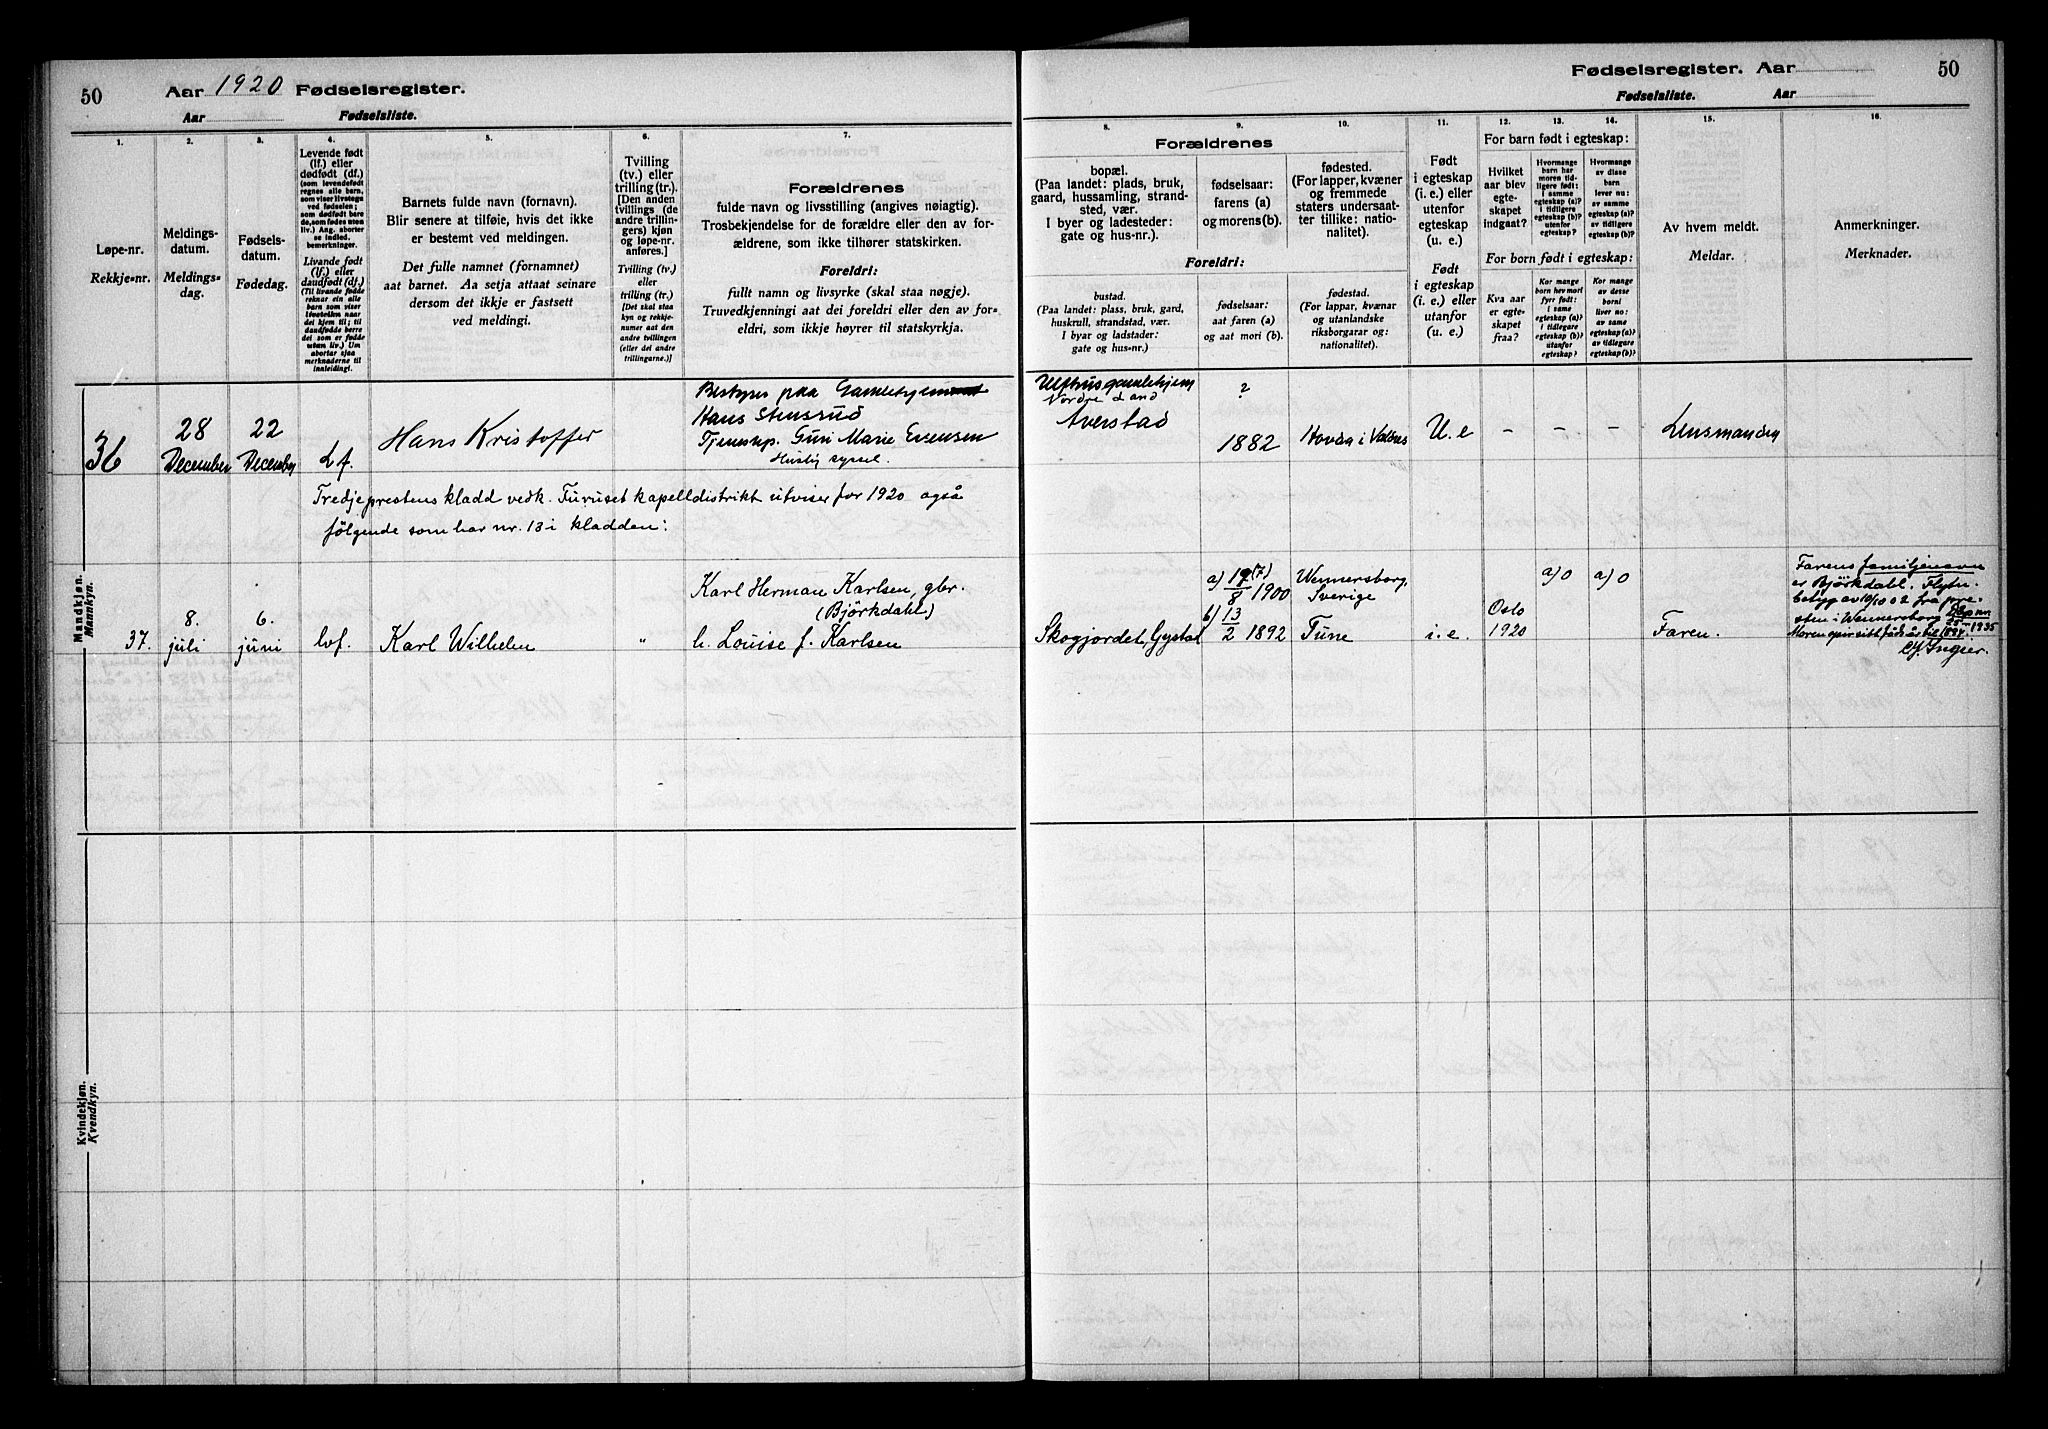 50
Aar 1920 Fødselsregister.
Aar Fødselsliste.
1.
Løpe-nr.
Rekkje-nr.
2.
Meldings-
datum.
Meldings-
dag.
3.
Fødsels-
datum.
Fødedag.
4.
Levende født
(lf.) eller
dødfødt (df.)
(som levendefødt
regnes alle barn,
som viser livstegn
ved fødselen;
som dødfødt bare
de, som fødes uten
liv.) Ang. aborter
se indled.
bemerkninger.
Livande født
(lf.) eller
daudfødt (df.)
5.
Barnets fulde navn (fornavn).
Blir senere at tilføie, hvis det ikke
er bestemt ved meldingen.
Det fulle namnet (fornamnet)
aat barnet. Aa setja attaat seinare
dersom det ikkje er fastsett
ved meldingi.
6.
Tvilling
(tv.) eller
trilling (tr.).
[Den anden
tvillings (de
andre trillin-
gers) kjøn
og løpe-nr.
anføres.]
Tvilling (tv.)
eller
trilling (tr.)
[Det skal staa
kyn og rekkje-
numer aat den
andre tvillingen
(eller dei andre
trillingarne.)]
7.
Forældrenes
fulde navn og livsstilling (angives nøiagtig).
Trosbekjendelse for de forældre eller den av for-
ældrene, som ikke tilhører statskirken.
Foreldri:
fullt namn og livsyrke (skal staa nøgje).
Truvedkjenningi aat dei foreldri eller den av for-
eldri, som ikkje høyrer til statskyrkja.
Mandkjøn.
Mannkyn.
36
28
December
22
December
Lf.
Hans Kristoffer
Bestyrer paa
Hans Stensrud
Tjenestep. Guri Marie Evensen
Huslig syssel.
Tredjeprestens kladd vedk. Furuset kapelldistrikt utviser for 1920 også
følgende som har nr. 13 i kladden:
37.
8.
juli
6.
juni
lvf.
Karl Wilhelm
"
Karl Herman Karlsen, gbr.
(Björkdahl)
h. Louise f. Karlsen
Kvindekjøn.
Kvendkyn.
Fødselsregister. Aar 50
Fødselsliste. Aar
8.
Forældrenes
bopæl.
(Paa landet: plads, bruk,
gaard, hussamling, strand-
sted, vær.
I byer og ladesteder:
gate og hus-nr.).
Foreldri:
bustad.
(Paa landet: plass, bruk, gard,
huskrull, strandstad, vær.
I byar og ladstader:
gate og hus-nr.)
9.
fødselsaar:
farens (a)
og morens (b).
fødselsaar:
aat faren (a)
og aat mori (b).
10.
fødested.
(For lapper, kvæner
og fremmede
staters undersaat-
ter tillike: natio-
nalitet).
fødestad.
(For lappar, kvænar
og utanlandske
riksborgarar og:
nationalitet).
11.
Født
i egteskap
(i. e.) eller
utenfor
egteskap
(u. e.)
Født
i egteskap
(i. e.) eller
utanfor
(u. e.)
12.
13.
14.
For barn født i egteskap:
Hvilket
aar blev
egte-
skapet
indgaat?
Hvormange
barn har
moren tid-
ligere født:
i samme
egteskap (a)?
i tidligere
egteskap (b)?
utenfor
egteskap?
Hvormange
av disse
barn
lever nu:
av samme
egteskap (a)?
av tidligere
egteskap (b)?
For born født i egteskap:
Kva aar
er egte-
skapet
fraa?
Kor mange
born hev mori
fyrr født:
i same
egteskap (a)?
i tidlegare
egteskap (b)?
utanfor
egteskap?
Kor mange
av desse
borni
liver no:
av same
egteskap (a)?
av tidlegare
egteskap (b)?
15.
Av hvem meldt.
Meldar.
16.
Anmerkninger.
Merknader.
Nordre Land
Averstad
?
1882
Hovda i Valdres
U.e
–
–
–
Lensmanden
Skogjordet, Gystad
a) 19/8 (7) 1900
b) 13/2 1892
Wennersborg,
Sverige
Tune
i.e.
Oslo
1920
a) 0
a) 0
Faren.
Farens familjenavn
er Björkdahl. Flytn.
betyg av 10/10 02 fra pre-
sten i Wennersborg